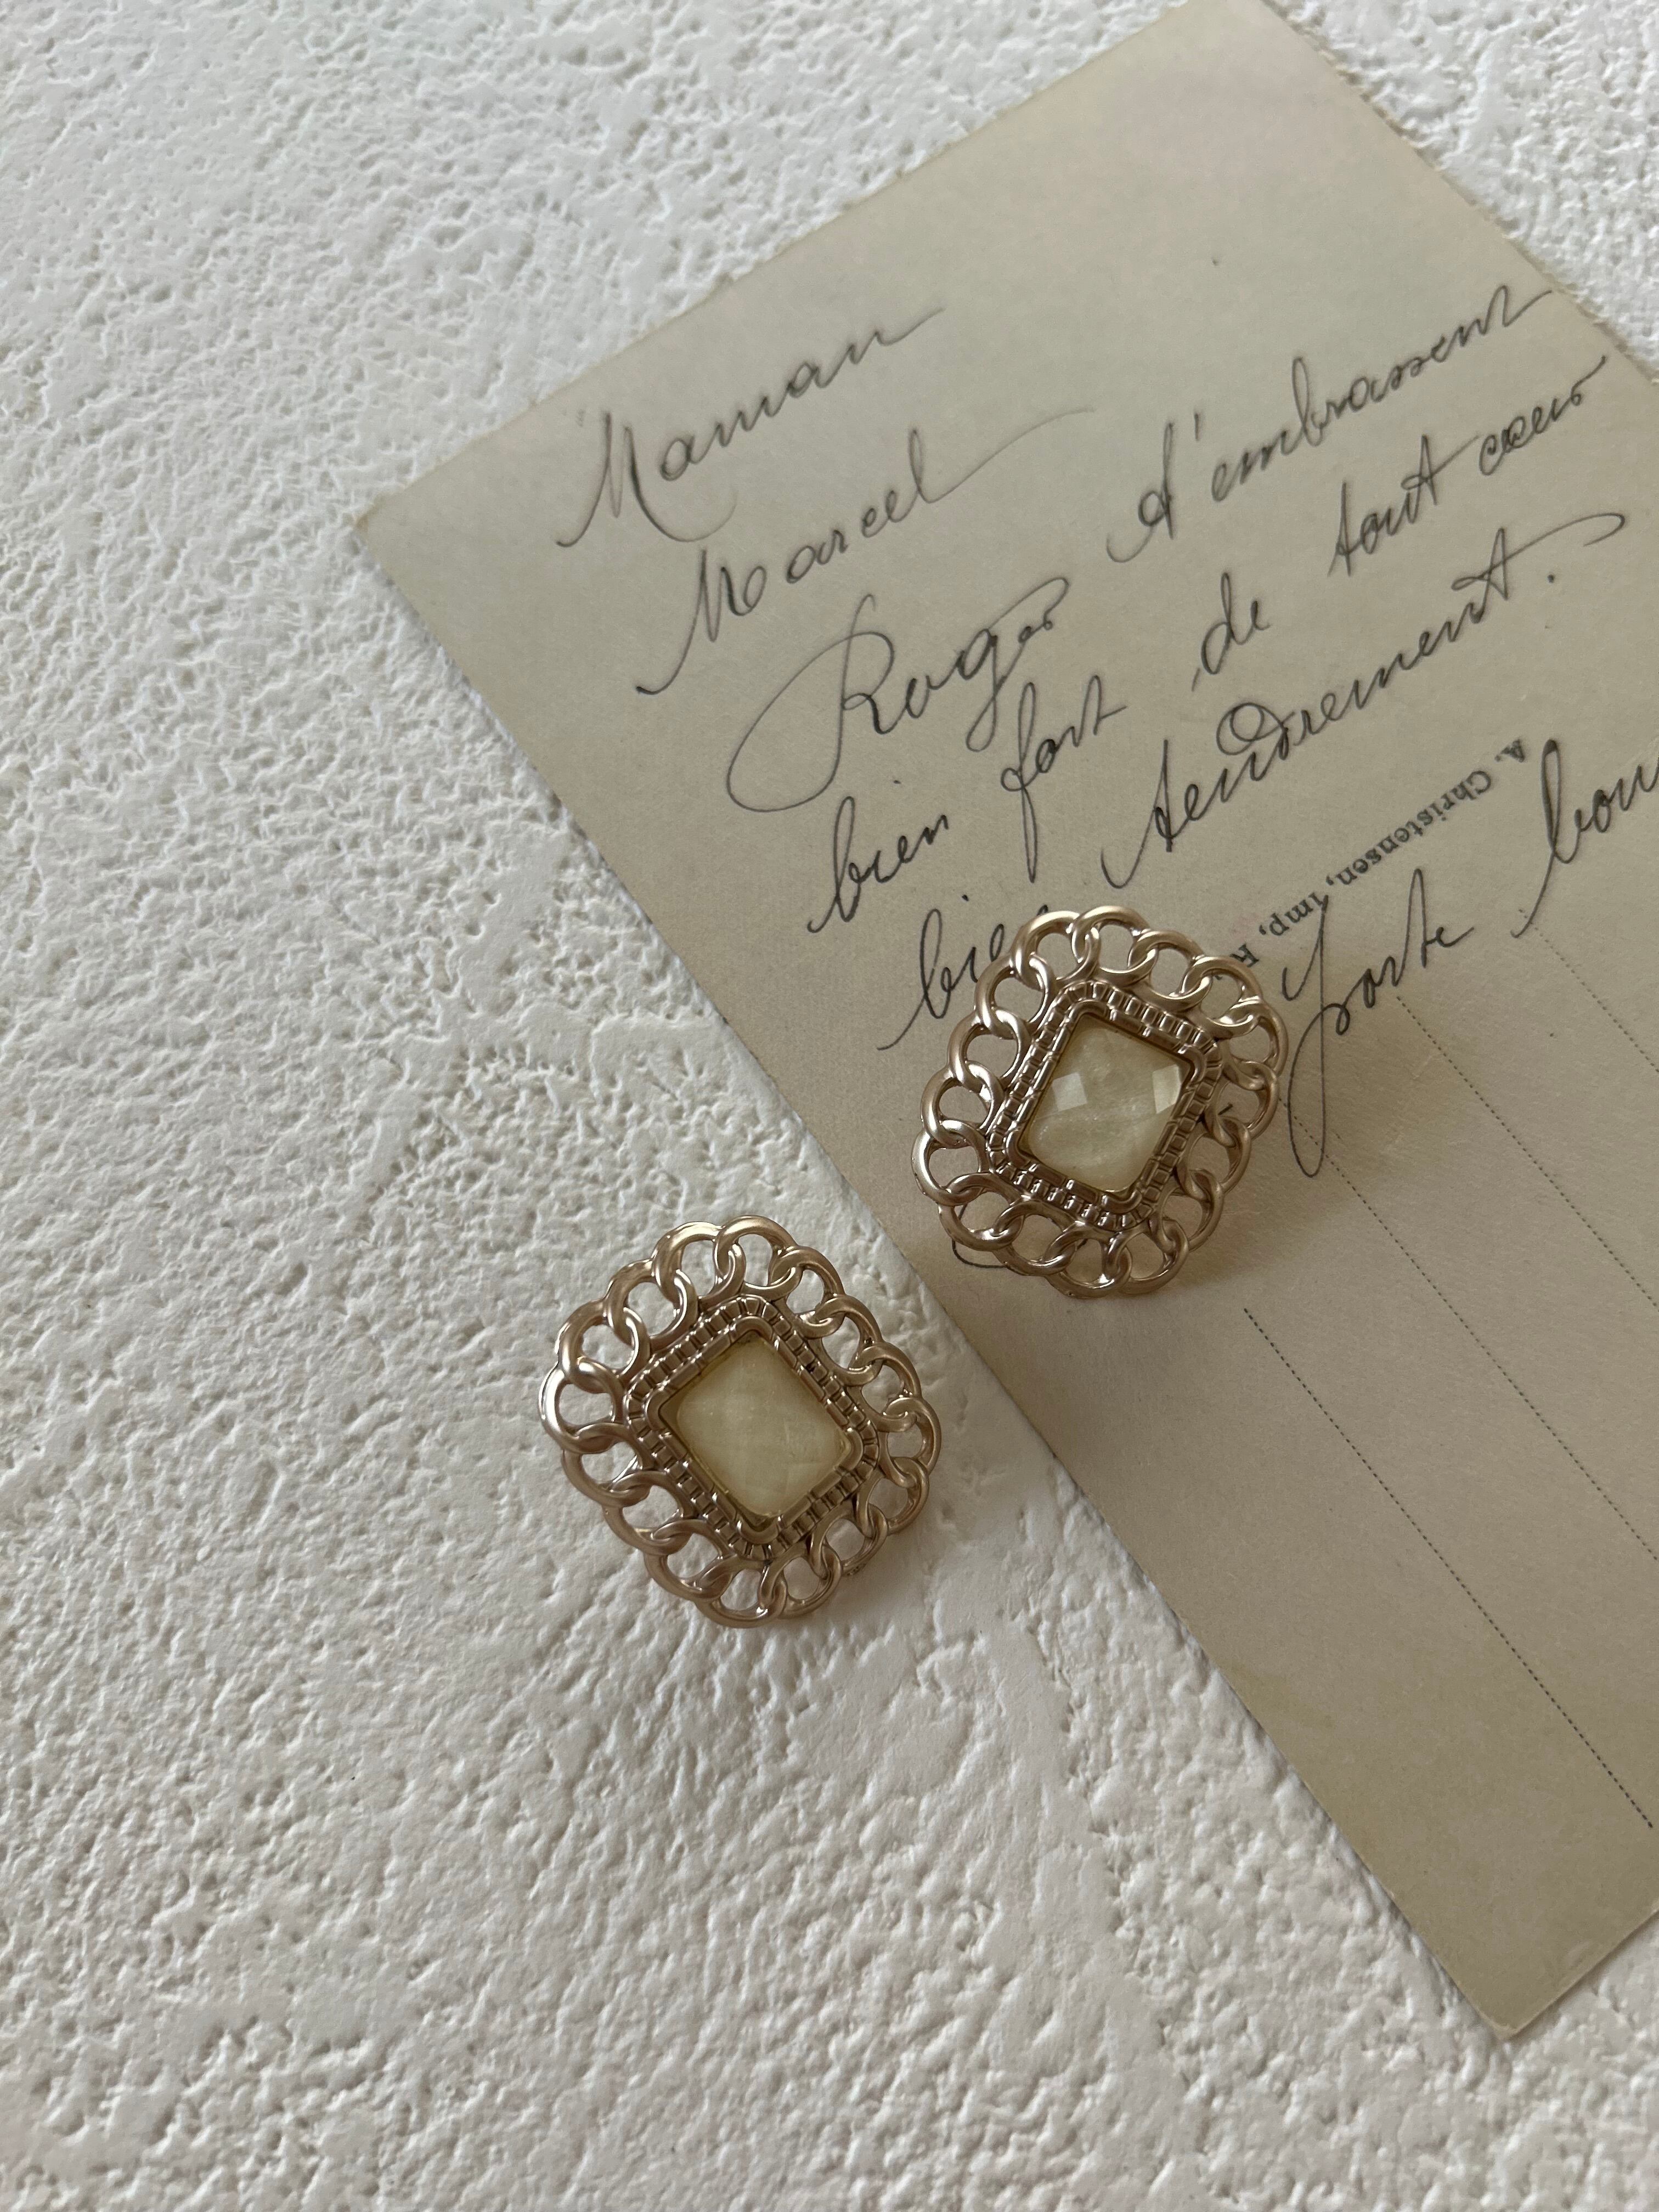 Maman
Marcel
Roger t'embrassent
bien fort de tout cœur
bien tendrement.
Porte bon
A. Christensen, imp, R